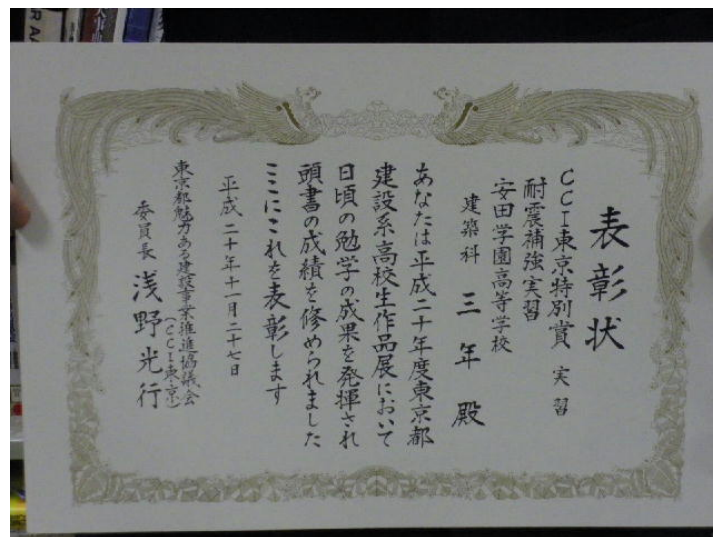 表彰状
CCI東京特別賞 実習
耐震補強実習
安田学園高等学校
建築科 三年 殿
あなたは平成二十年度東京都
建設系高校生作品展において
日頃の勉学の成果を発揮され
頭書の成績を修められました
ここにこれを表彰します
平成二十年十一月二十七日
東京都魅力ある建設事業推進協議会
(CCI東京)
委員長 浅野光行